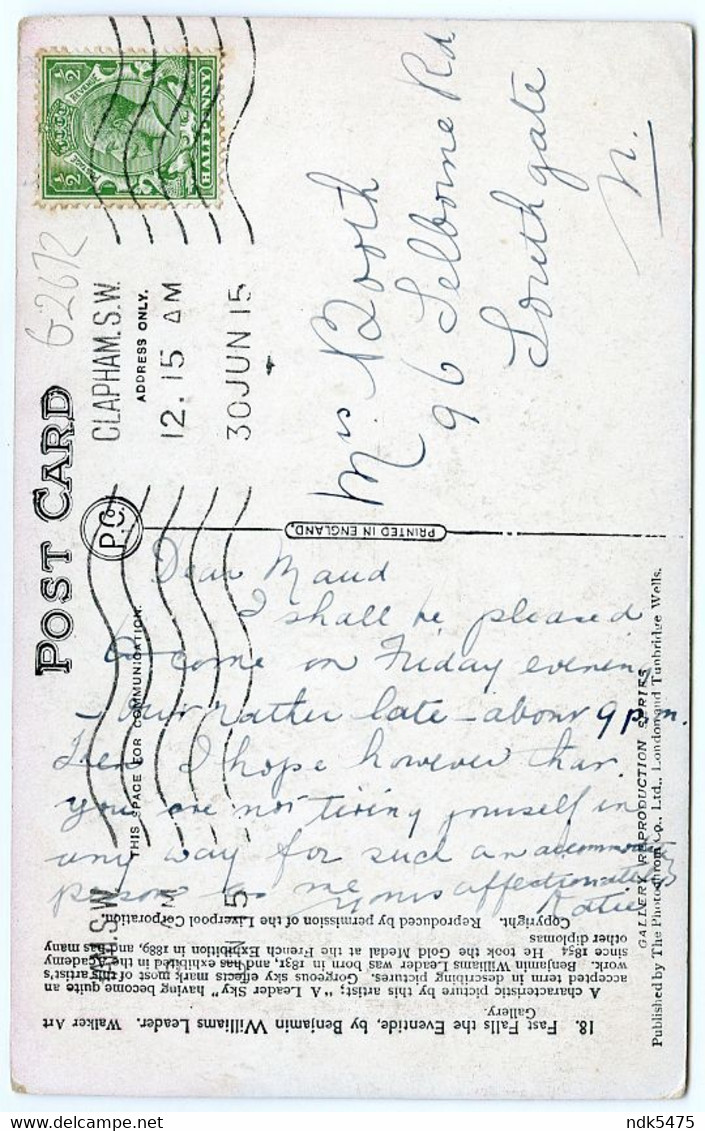 POST CARD
P.C.
CLAPHAM. S.W.
ADDRESS ONLY.
12.15 AM
30 JUN 15
G2672
POSTAGE
REVENUE
1/2
1/2
HALFPENNY
Mrs Booth
96 Selborne Rd
Southgate
N.
PRINTED IN ENGLAND.
THIS SPACE FOR COMMUNICATION.
Dear Maud
I shall be pleased
to come on Friday evening
- but rather late - about 9 p.m.
I hope however that
you are not tiring yourself in
any way for such an accommodating
person as me
yours affectionately
Katie
HAM. S.W.
18. Fast Falls the Eventide, by Benjamin Williams Leader. Walker Art
Gallery.
A characteristic picture by this artist; "A Leader Sky" having become quite an
accepted term in describing pictures. Gorgeous sky effects mark most of this artist's
work. Benjamin Williams Leader was born in 1831, and has exhibited in the Academy
since 1854 He took the Gold Medal at the French Exhibition in 1889, and has many
other diplomas
Copyright. Reproduced by permission of the Liverpool Corporation.
GALLERY REPRODUCTION SERIES
Published by The Photochrom Co., Ltd., London and Tunbridge Wells.
ndk5475